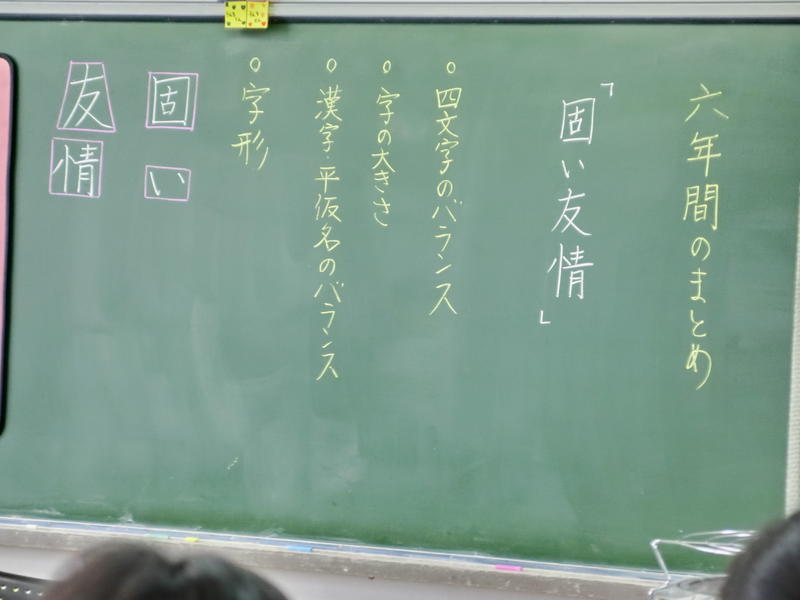 六年間のまとめ
「固い友情」
○四文字のバランス
○字の大きさ
○漢字・平仮名のバランス
○字形
固い
友情